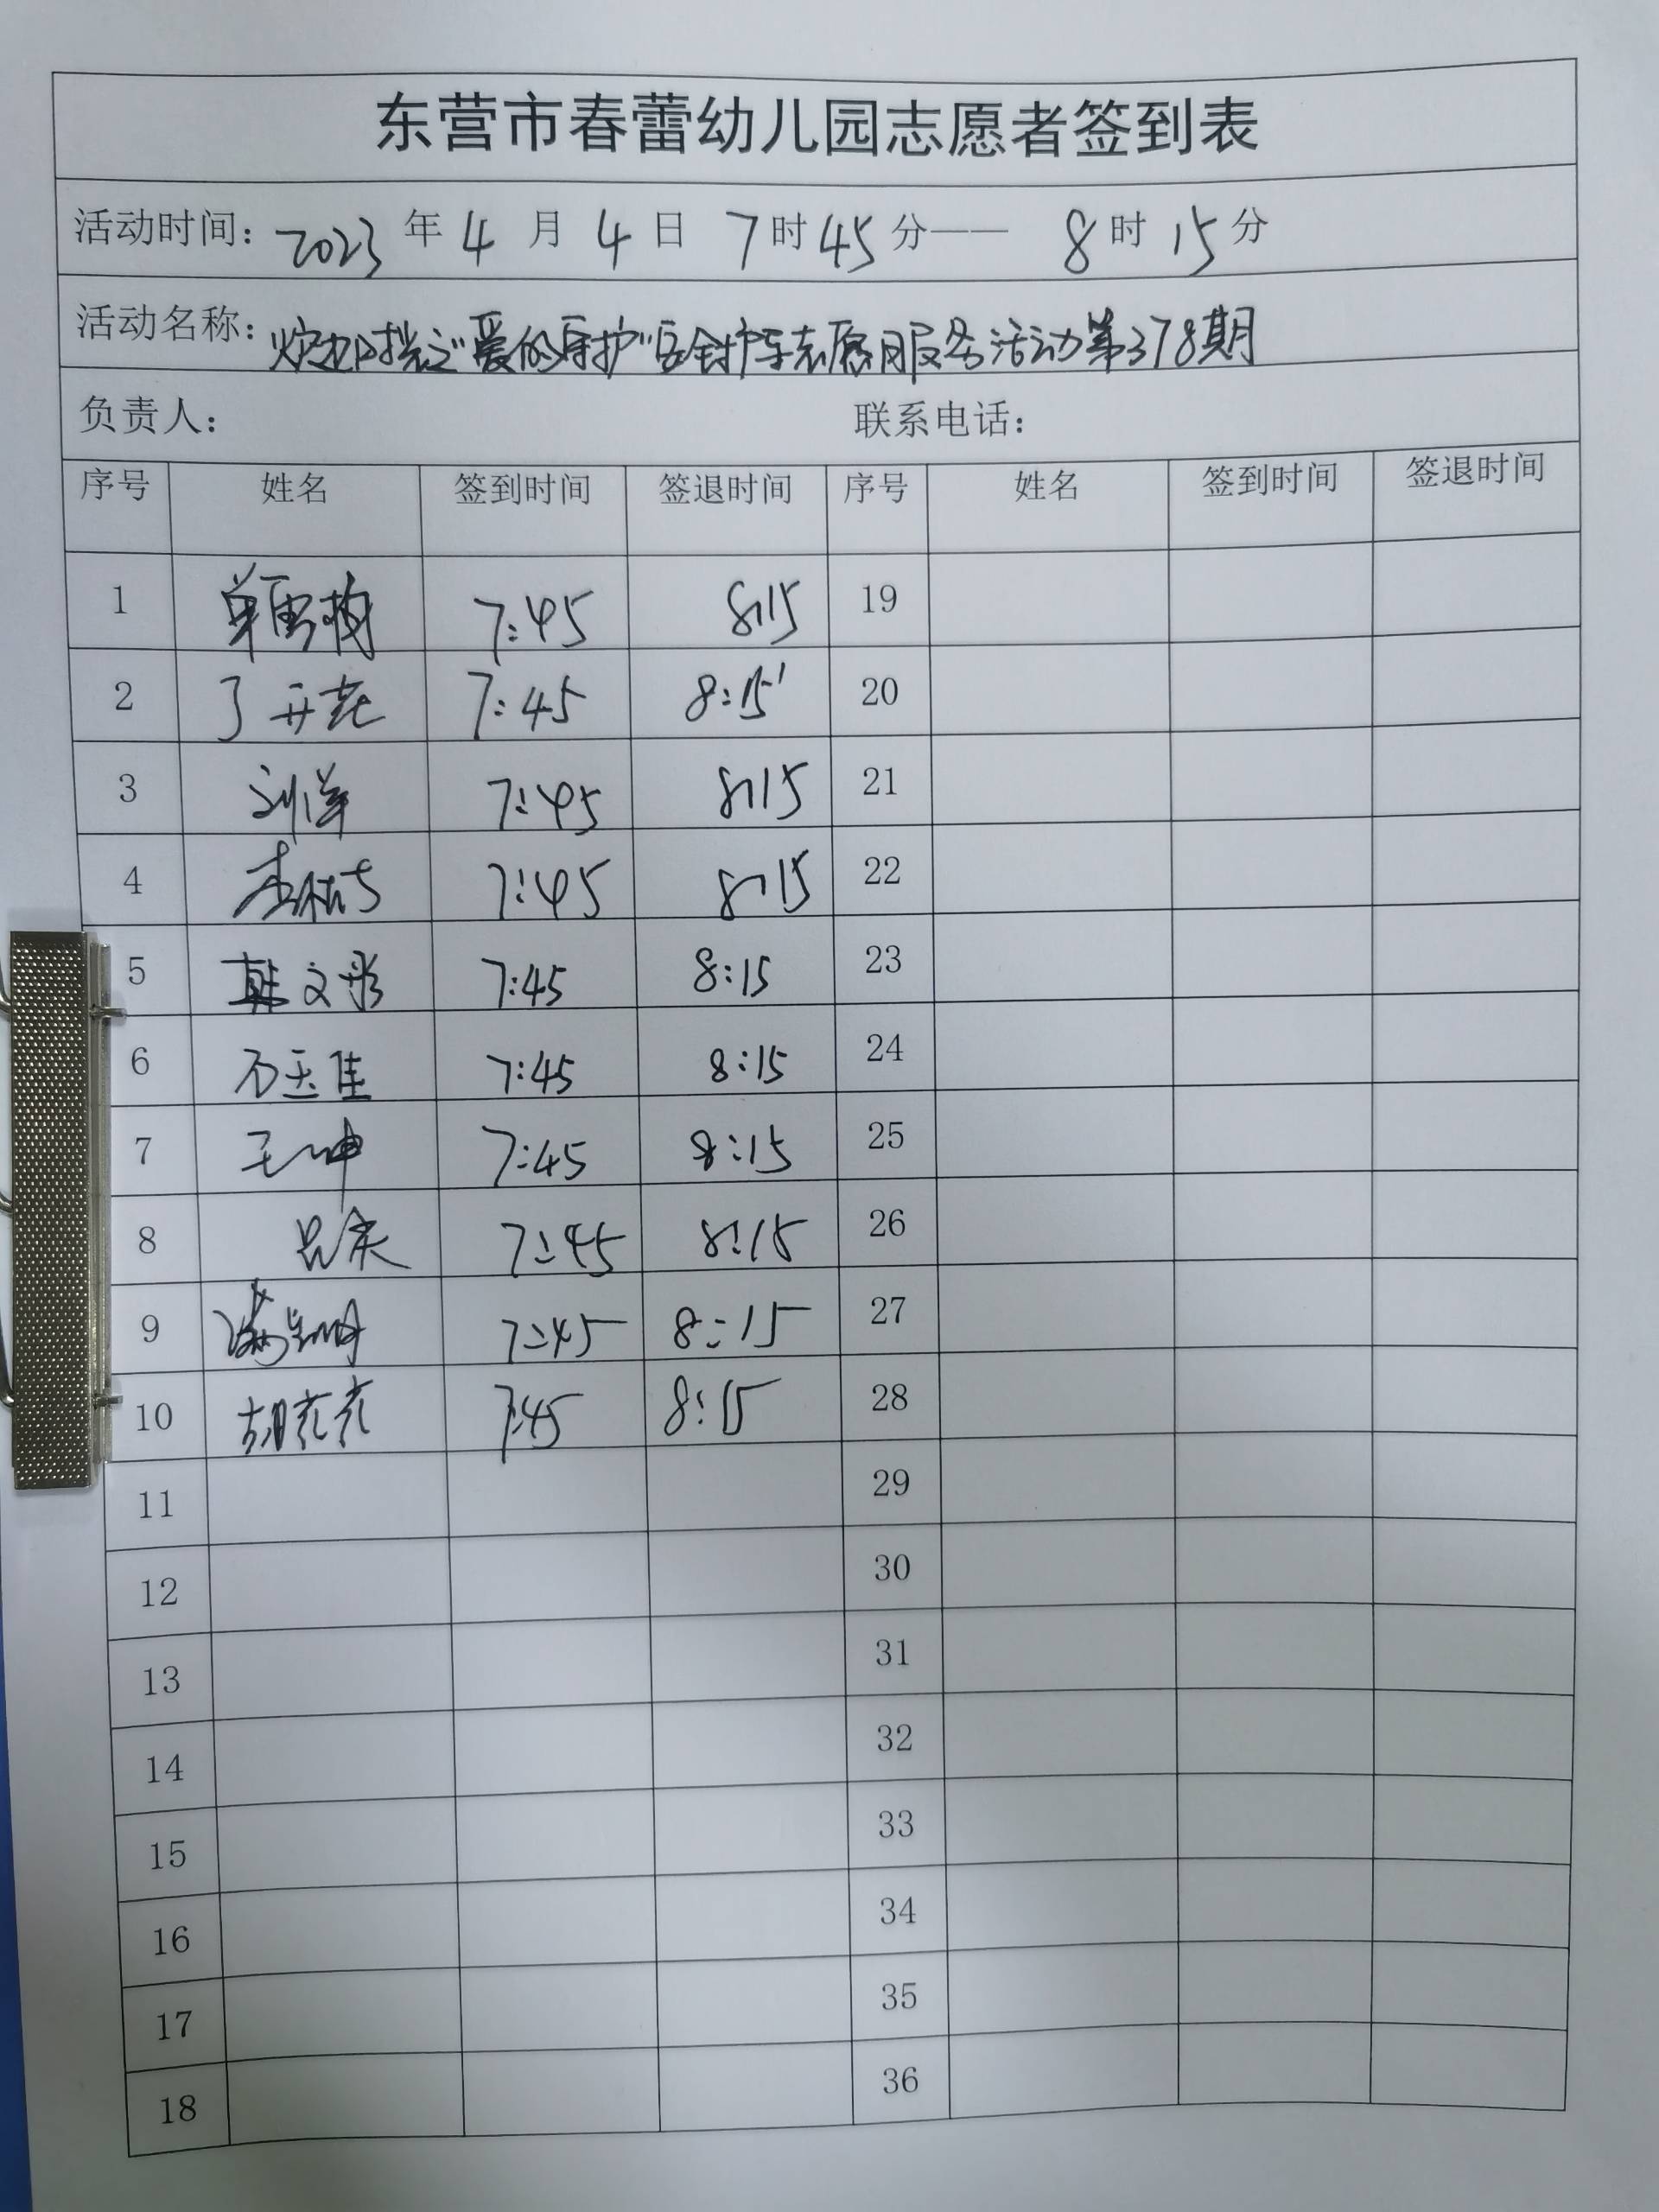 东营市春蕾幼儿园志愿者签到表
活动时间: 2023 年 4 月 4 日 7 时 45 分—— 8 时 15 分
活动名称: "爱的守护"安全护车志愿服务活动第378期
负责人: 联系电话:
序号 姓名 签到时间 签退时间 序号 姓名 签到时间 签退时间
1 单雪梅 7:45 8:15 19
2 丁开花 7:45 8:15 20
3 刘洋 7:45 8:15 21
4 7:45 8:15 22
5 韩文彤 7:45 8:15 23
6 石玉佳 7:45 8:15 24
7 王坤 7:45 8:15 25
8 7:45 8:15 26
9 7:45 8:15 27
10 胡花花 7:45 8:15 28
11 29
12 30
13 31
14 32
15 33
16 34
17 35
18 36